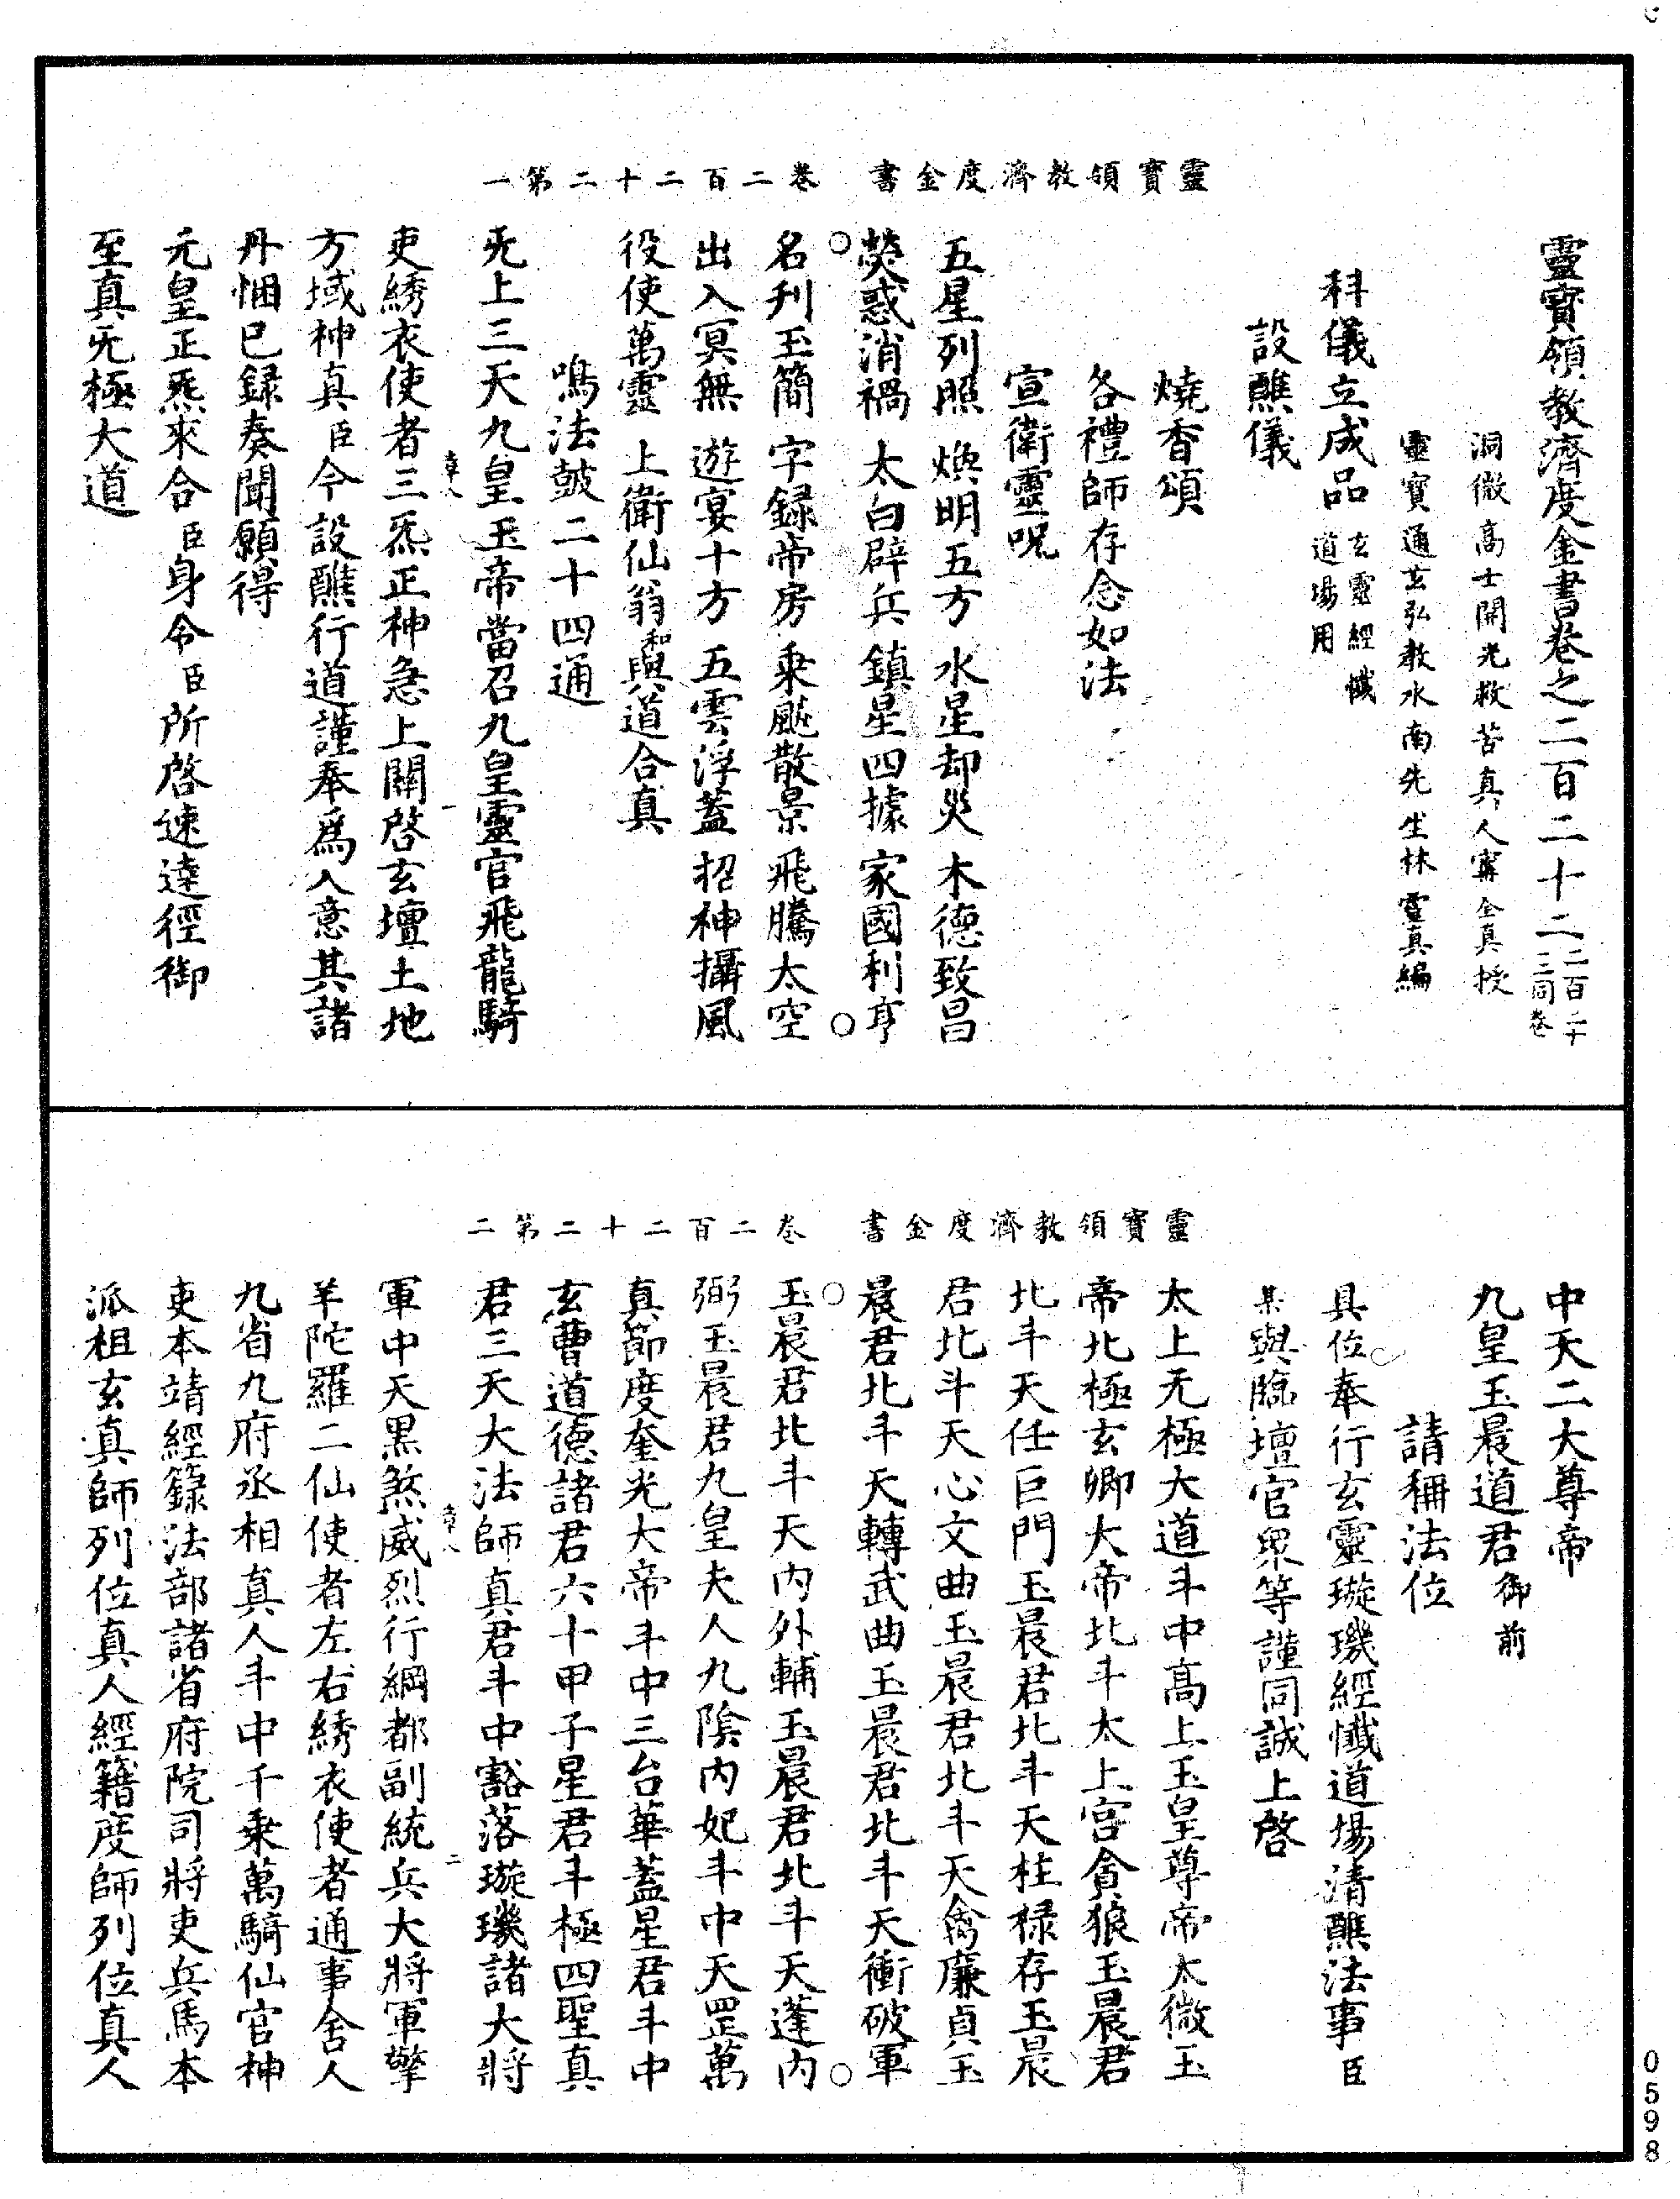 靈寶領教濟度金書卷之二百二十二 二百二十三同卷
洞微高士開光救苦真人甯全真授
靈寶通玄弘教水南先生林靈真編
科儀立成品 玄靈經懺道場用
設醮儀
燒香頌
各禮師存念如法
宣衛靈呪
五星列照 煥明五方 水星却災 木德致昌
熒惑消禍 太白辟兵 鎮星四據 家國利亨
名刋玉簡 字録帝房 乘飈散景 飛騰太空
出入冥無 遊宴十方 五雲浮蓋 招神攝風
役使萬靈 上衛仙翁 和與道合真
鳴法鼓二十四通
靈寶領教濟度金書 卷二百二十二第一
旡上三天九皇玉帝當召九皇靈官飛龍騎
吏綉衣使者三炁正神急上關啓玄壇土地
方域神真臣今設醮行道謹奉爲入意其諸
丹悃已録奏聞願得
元皇正炁來合臣身令臣所啓速達徑御
至真旡極大道
中天二大尊帝
九皇玉晨道君御前
請稱法位
具位奉行玄靈璇璣經懺道場清醮法事臣
某與臨壇官衆等謹同誠上啓
太上无極大道斗中高上玉皇尊帝太微玉
帝北極玄卿大帝北斗太上宮貪狼玉晨君
北斗天任巨門玉晨君北斗天柱禄存玉晨
君北斗天心文曲玉晨君北斗天禽廉貞玉
晨君北斗天轉武曲玉晨君北斗天衝破軍
玉晨君北斗天内外輔玉晨君北斗天蓬内
弼玉晨君九皇夫人九陰内妃斗中天罡萬
真節度奎光大帝斗中三台華蓋星君斗中
玄曹道德諸君六十甲子星君斗極四聖真
靈寶領教濟度金書 卷二百二十二第二
君三天大法師真君斗中豁落璇璣諸大將
軍中天黒煞威烈行綱都副統兵大將軍擎
羊陀羅二仙使者左右綉衣使者通事舍人
九省九府丞相真人斗中千乘萬騎仙官神
吏本靖經籙法部諸省府院司將吏兵馬本
派祖玄真師列位真人經籍度師列位真人
0598